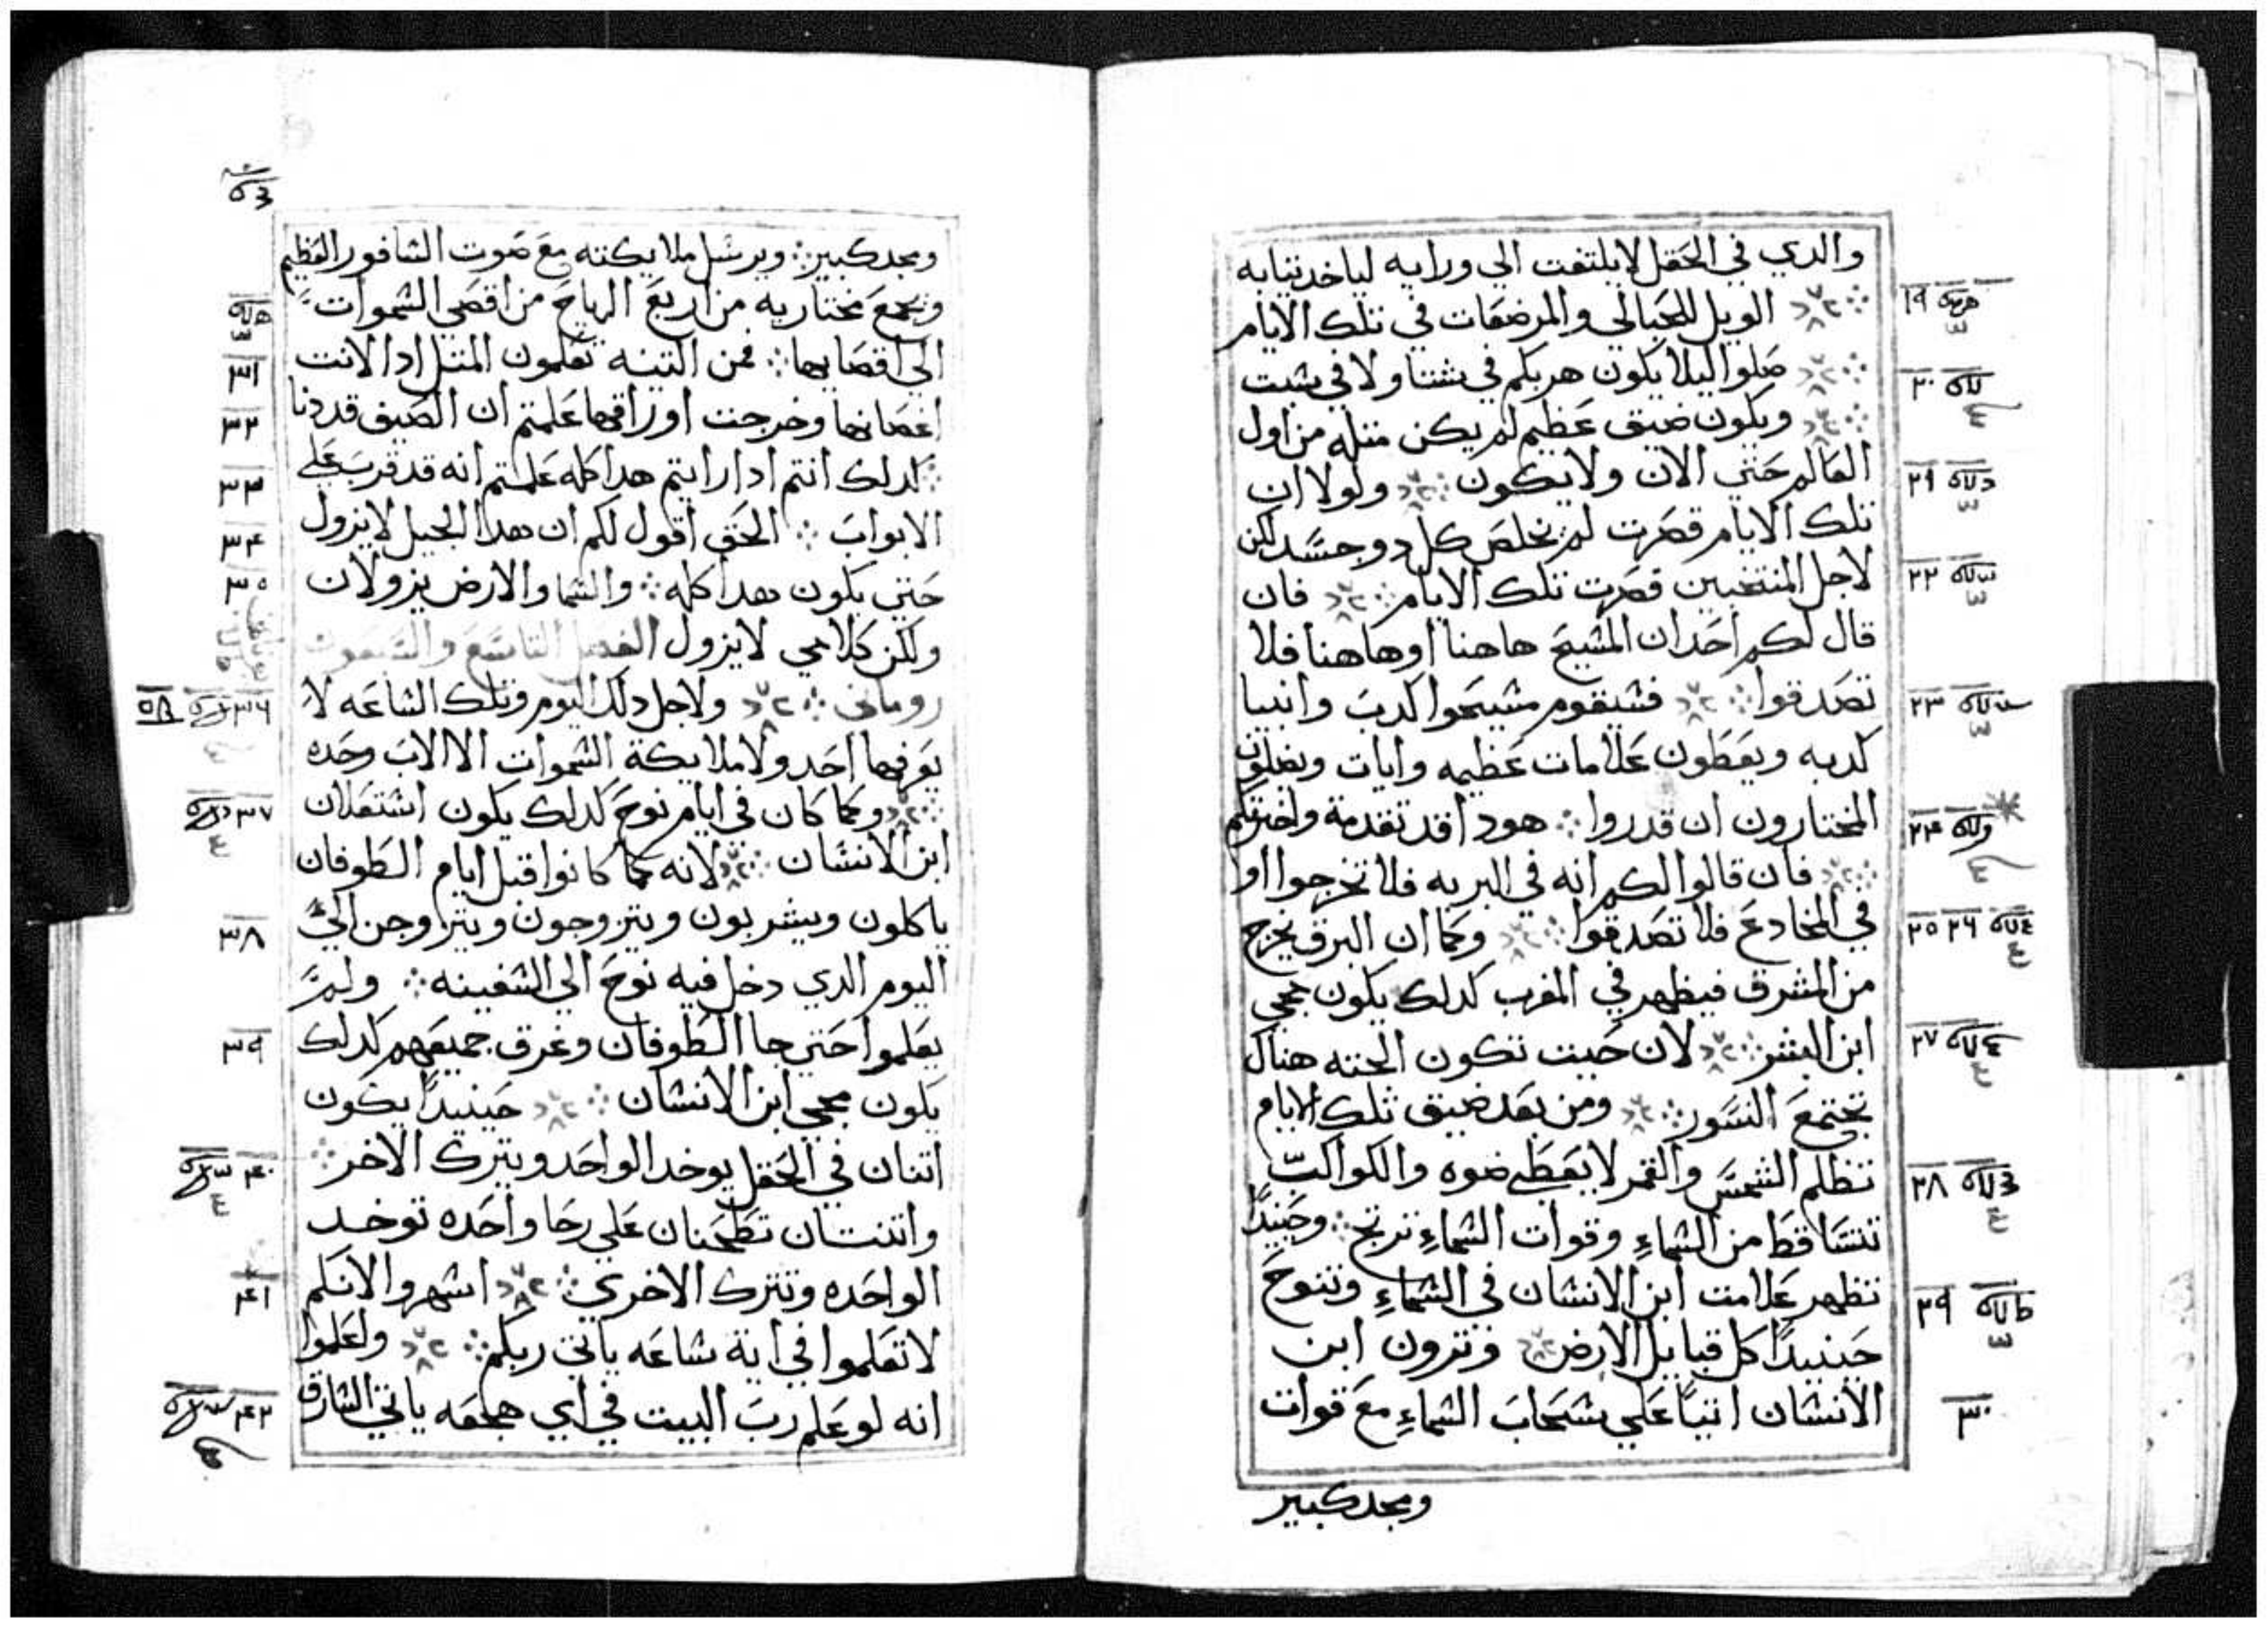 والدي في الحقل لا يلتفت الي ورايه لياخد تيابه
١٩
الويل للحبالي والمرضعات في تلك الايام
صلوا ليلا يكون هربكم في شتا ولا في سبت
٢٠
ويكون ضيق عظيم لم يكن متله من اول
العالم حتي الان ولا يكون ولولا ان
٢١
تلك الايام قصرت لم يخلص كل دو جسد لكن
لاجل المنتخبين قصرت تلك الايام فان
٢٢
قال لكم احد ان المسيح هاهنا او هاهنا فلا
تصدقوا فسيقوم مسيحوا كدب وانبيا
٢٣
كدبه ويعطون علامات عظيمه وايات ويضلون
المختارون ان قدروا هودا قد تقدمة واخبرتكم
٢٤
فان قالوا لكم انه في البريه فلا تخرجوا او
في المخادع فلا تصدقوا وكما ان البرق يخرج
٢٥ ٢٦
من المشرق فيظهر في المغرب كدلك يكون مجي
ابن البشر لان حيت تكون الجته هناك
٢٧
تجتمع النسور ومن بعد ضيق تلك الايام
تظلم الشمس والقمر لا يعطي ضوه والكواكب
٢٨
تتساقط من السماء وقوات السماء ترتج وحينيدا
تظهر علامت ابن الانسان في السماء وتنوح
٢٩
حينيدا كل قبايل الارض وترون ابن
الانسان اتيا علي سحاب السماء مع قوات
٣٠
ومجد كبير
ومجد كبير ويرسل ملايكته مع صوت السافور العظيم
ويجمع مختاريه من اربع الرياح من اقصي السموات
الي اقصايها فمن التينه تعلمون المتل ادا لانت
٣١
اغصانها وخرجت اوراقها علمتم ان الصيف قد دنا
٣٢
كدلك انتم ادا رايتم هدا كله علمتم انه قد قرب علي
٣٣
الابواب الحق اقول لكم ان هدا الجيل لا يزول
٣٤
حتي يكون هدا كله والسما والارض يزولان
٣٥
ولكن كلامي لا يزول الفصل التاسع والسبعون
روماني ولاجل دلك اليوم وتلك الساعه لا
٣٦
يعرفها احد ولا ملايكة السموات الا الاب وحده
وكما كان في ايام نوح كدلك يكون استعلان
٣٧
ابن الانسان لانه كما كانوا قبل ايام الطوفان
ياكلون ويشربون ويتزوجون ويتزوجن الي
٣٨
اليوم الدي دخل فيه نوح الي السفينه ولم
يعلموا حتي جا الطوفان وغرق جميعهم كدلك
٣٩
يكون مجي ابن الانسان حينيدا يكون
اتنان في الحقل يوخد الواحد ويترك الاخر
٤٠
واتنتان تطحنان علي رحا واحده توخد
الواحده وتترك الاخري اسهروا لانكم
٤١
لا تعلموا في اية ساعه ياتي ربكم واعلموا
انه لو علم رب البيت في اي هجعه ياتي السارق
٤٢